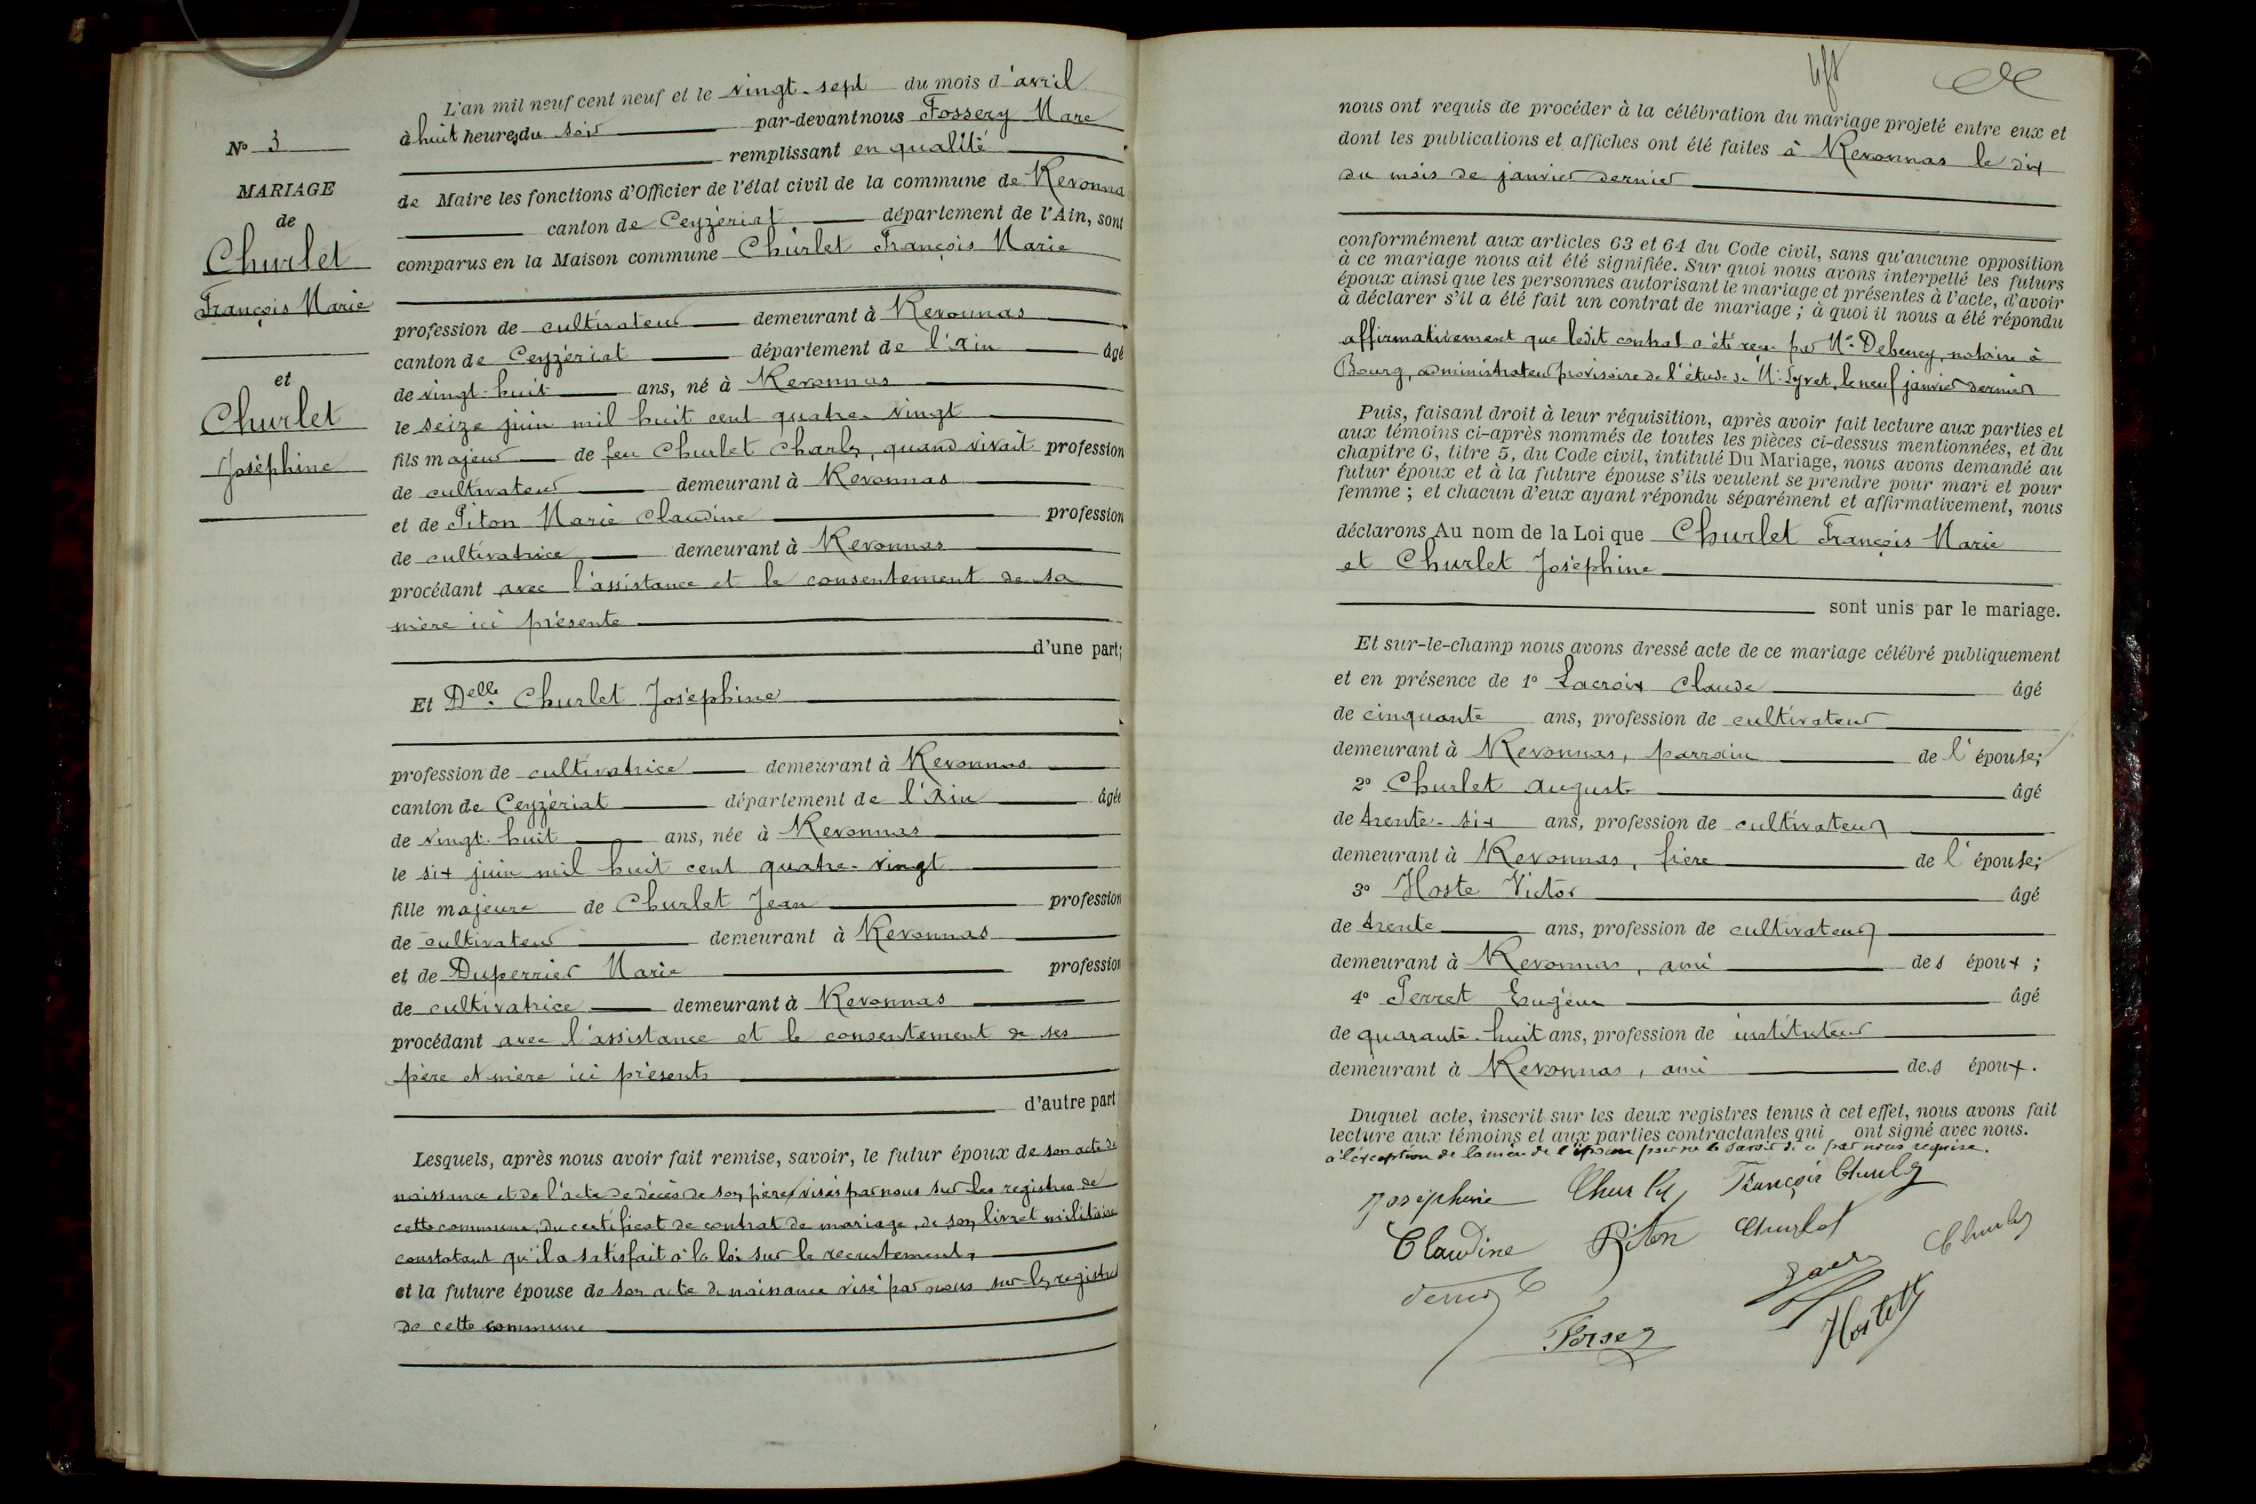 N° 3
MARIAGE
de
Churlet
François Marie
et
Churlet
Joséphine
L'an mil neuf cent neuf et le vingt-sept du mois d'avril
à huit heures du soir par-devant nous Fossery Marc
remplissant en qualité
de Maire les fonctions d'Officier de l'état civil de la commune de Revonnas
canton de Ceyzériat département de l'Ain, sont
comparus en la Maison commune Churlet François Marie
profession de cultivateur demeurant à Revonnas
canton de Ceyzériat département de l'Ain âgé
de vingt-huit ans, né à Revonnas
le seize juin mil huit cent quatre-vingt
fils majeur de feu Churlet Charles, quand vivait profession
de cultivateur demeurant à Revonnas
et de Piton Marie Claudine profession
de cultivatrice demeurant à Revonnas
procédant avec l'assistance et le consentement de sa
mère ici présente
d'une part;
Et Delle Churlet Joséphine
profession de cultivatrice demeurant à Revonnas
canton de Ceyzériat département de l'Ain âgée
de vingt-huit ans, née à Revonnas
le six juin mil huit cent quatre-vingt
fille majeure de Churlet Jean profession
de cultivateur demeurant à Revonnas
et de Duperrier Marie profession
de cultivatrice demeurant à Revonnas
procédant avec l'assistance et le consentement de ses
père et mère ici présents
d'autre part
Lesquels, après nous avoir fait remise, savoir, le futur époux de son acte de
naissance et de l'acte de décès de son père, visés par nous sur les registres de
cette commune, du certificat de contrat de mariage, de son livret militaire
constatant qu'il a satisfait à la loi sur le recrutement,
et la future épouse de son acte de naissance visé par nous sur les registres
de cette commune
nous ont requis de procéder à la célébration du mariage projeté entre eux et
dont les publications et affiches ont été faites à Revonnas le dix
du mois de janvier dernier
conformément aux articles 63 et 64 du Code civil, sans qu'aucune opposition
à ce mariage nous ait été signifiée. Sur quoi nous avons interpellé les futurs
époux ainsi que les personnes autorisant le mariage et présentes à l'acte, d'avoir
à déclarer s'il a été fait un contrat de mariage ; à quoi il nous a été répondu
affirmativement que ledit contrat a été reçu par Me Debeney, notaire à
Bourg, administrateur provisoire de l'étude de Me Lyvet, le neuf janvier dernier
Puis, faisant droit à leur réquisition, après avoir fait lecture aux parties et
aux témoins ci-après nommés de toutes les pièces ci-dessus mentionnées, et du
chapitre 6, titre 5, du Code civil, intitulé Du Mariage, nous avons demandé au
futur époux et à la future épouse s'ils veulent se prendre pour mari et pour
femme ; et chacun d'eux ayant répondu séparément et affirmativement, nous
déclarons Au nom de la Loi que Churlet François Marie
et Churlet Joséphine
sont unis par le mariage.
Et sur-le-champ nous avons dressé acte de ce mariage célébré publiquement
et en présence de 1° Lacroix Claude âgé
de cinquante ans, profession de cultivateur
demeurant à Revonnas, parrain de l'épouse;
2° Churlet Auguste âgé
de trente-six ans, profession de cultivateur
demeurant à Revonnas, frère de l'épouse;
3° Hoste Victor âgé
de trente ans, profession de cultivateur
demeurant à Revonnas, ami des époux ;
4° Perret Eugène âgé
de quarante-huit ans, profession de instituteur
demeurant à Revonnas, ami des époux.
Duquel acte, inscrit sur les deux registres tenus à cet effet, nous avons fait
lecture aux témoins et aux parties contractantes qui ont signé avec nous.
à l'exception de la mère de l'épouse pour ne le savoir de ce par nous requise.
Joséphine Churlet François Churlet
Claudine Piton Churlet Churlet